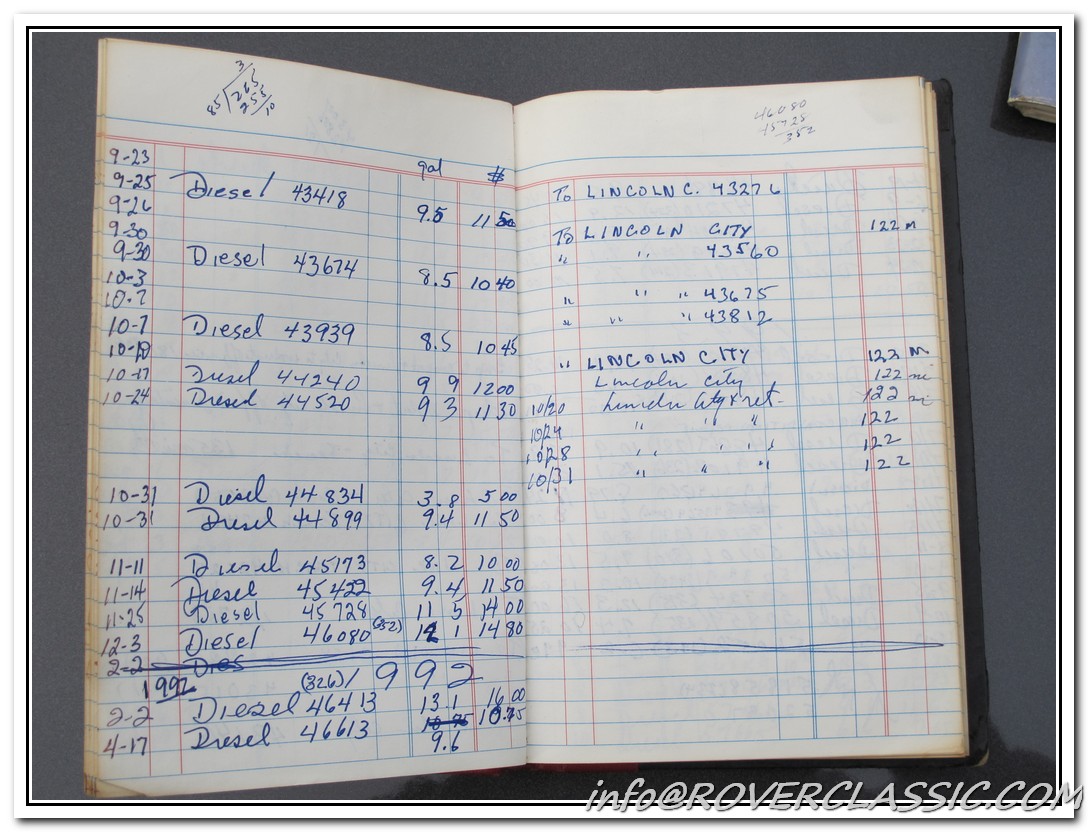 3
85 265
255
10
gal $
9-23
9-25 Diesel 43418 9.5 11 50
9-26
9-30
9-30 Diesel 43674 8.5 10 40
10-3
10-7
10-7 Diesel 43939 8.5 10 45
10-10
10-17 Diesel 44240 9 9 12 00
10-24 Diesel 44520 9 3 11 30
10-31 Diesel 44834 3.8 5 00
10-31 Diesel 44899 9.4 11 50
11-11 Diesel 45173 8.2 10 00
11-14 Diesel 45422 9.4 11 50
11-25 Diesel 45728 11 5 14 00
12-3 Diesel 46080 (352) 12 1 14 80
2-2 Dies
1992 (326) / 992
2-2 Diesel 46413 13 1 16.00
4-17 Diesel 46613 9.6 10.75
46080
45728
352
To LINCOLN C. 43276
To LINCOLN CITY 122 m
" " 43560
" " " 43675
" " " 43812
" LINCOLN CITY 122 m
Lincoln City 122 mi
10/20 Lincoln City & ret. 122 mi
10/24 " " " 122
10/28 " " " 122
10/31 " " " 122
info@ROVERCLASSIC.COM